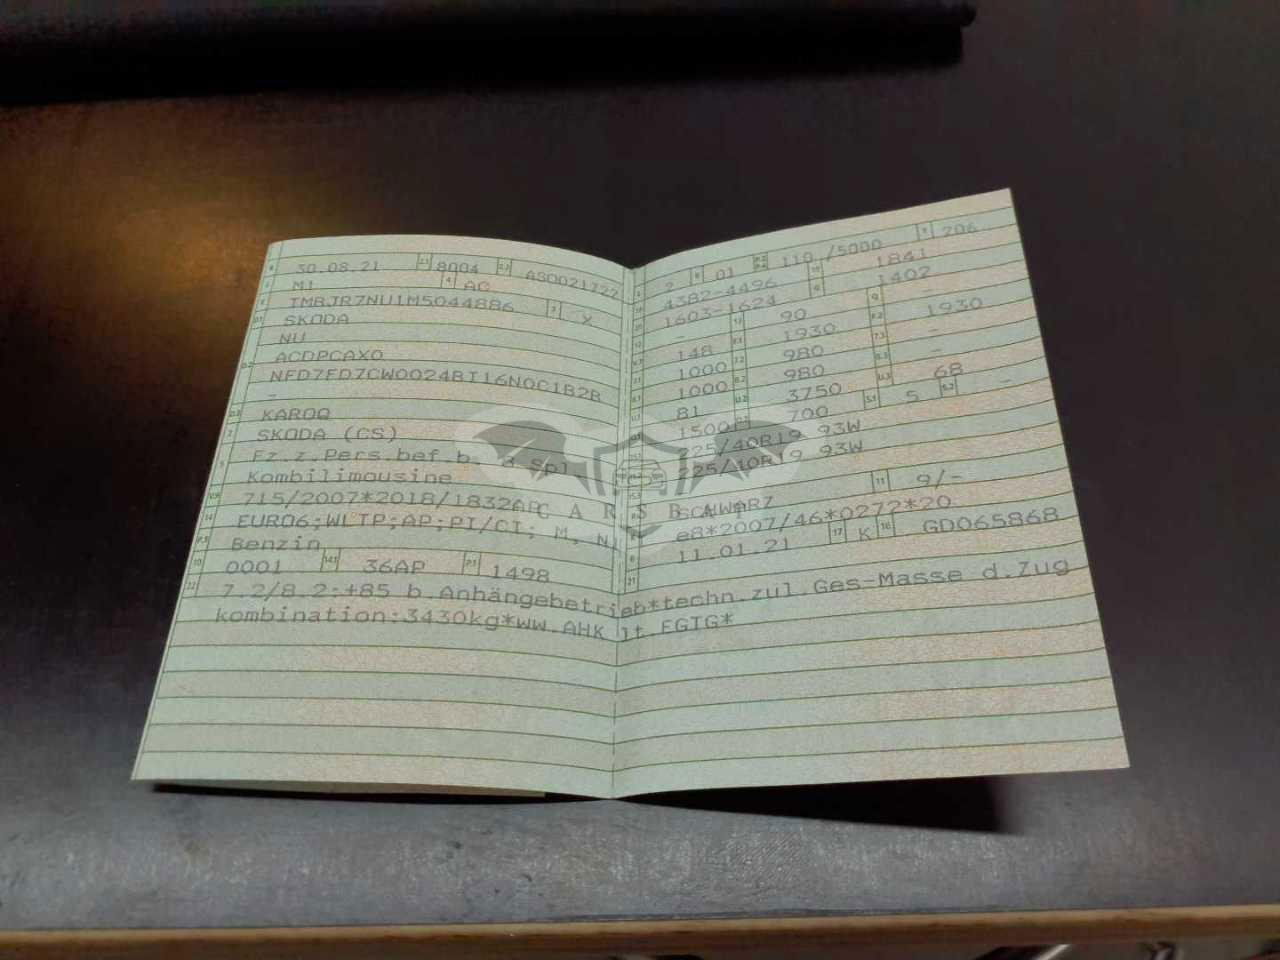 30.08.21 2.1 8004 2.2 AS0021722
M1 4 AC
TMBJR7NU1M5044886 3 X
SKODA
NU
ACDPCAX0
NFD7FD7CW0024BT16N0C1B2B
-
KAROQ
SKODA (CS)
Fz.z.Pers.bef.b. 8 Spl.
Kombilimousine
715/2007*2018/1832AP
EURO6;WLTP;AP;PI/CI; M, N1
Benzin
0001 14.1 36AP P.1 1498
2 01 110 /5000 T 206
4382-4496 1841
1603-1624 1402
- 90 -
148 1930 1930
1000 980 -
1000 980 -
81 3750 68
1500 700 S.1 5 S.2 -
225/40R19 93W
225/40R19 93W
SCHWARZ 11 9/-
e8*2007/46*0272*20
11.01.21 17 K 16 GD065868
22 7.2/8.2:+85 b.Anhängebetrieb*techn.zul.Ges-Masse d.Zug
kombination:3430kg*ww.AHK lt.EGTG*
CARSBAT